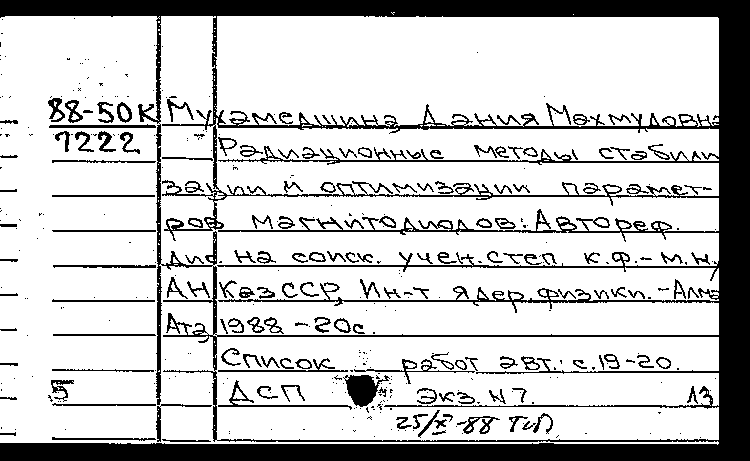 88-50К Мухамедшина Дания Махмудовна
7222 Радиационные методы стабили
зации и оптимизации парамет-
ров магнитодиодов: Автореф.
дис. на соиск. учен. степ. к.ф.-м.н.
АН КазССР, Ин-т ядер. физики. -Алма
Ата, 1988 -20с.
Список работ авт.: с.19-20.
5 ДСП Экз. N 7. 13
25/X-88